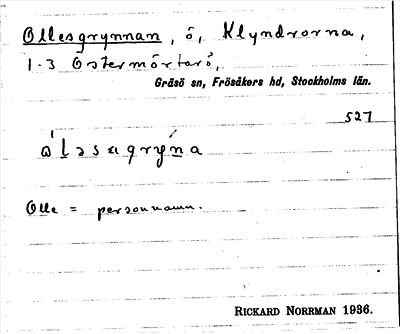 Ollesgrynnan, ö, Klyndrorna,
1-3 Östermörtarö,
Gräsö sn, Frösåkers hd, Stockholms län.
527
Olle = personnamn.
RICKARD NORRMAN 1936.